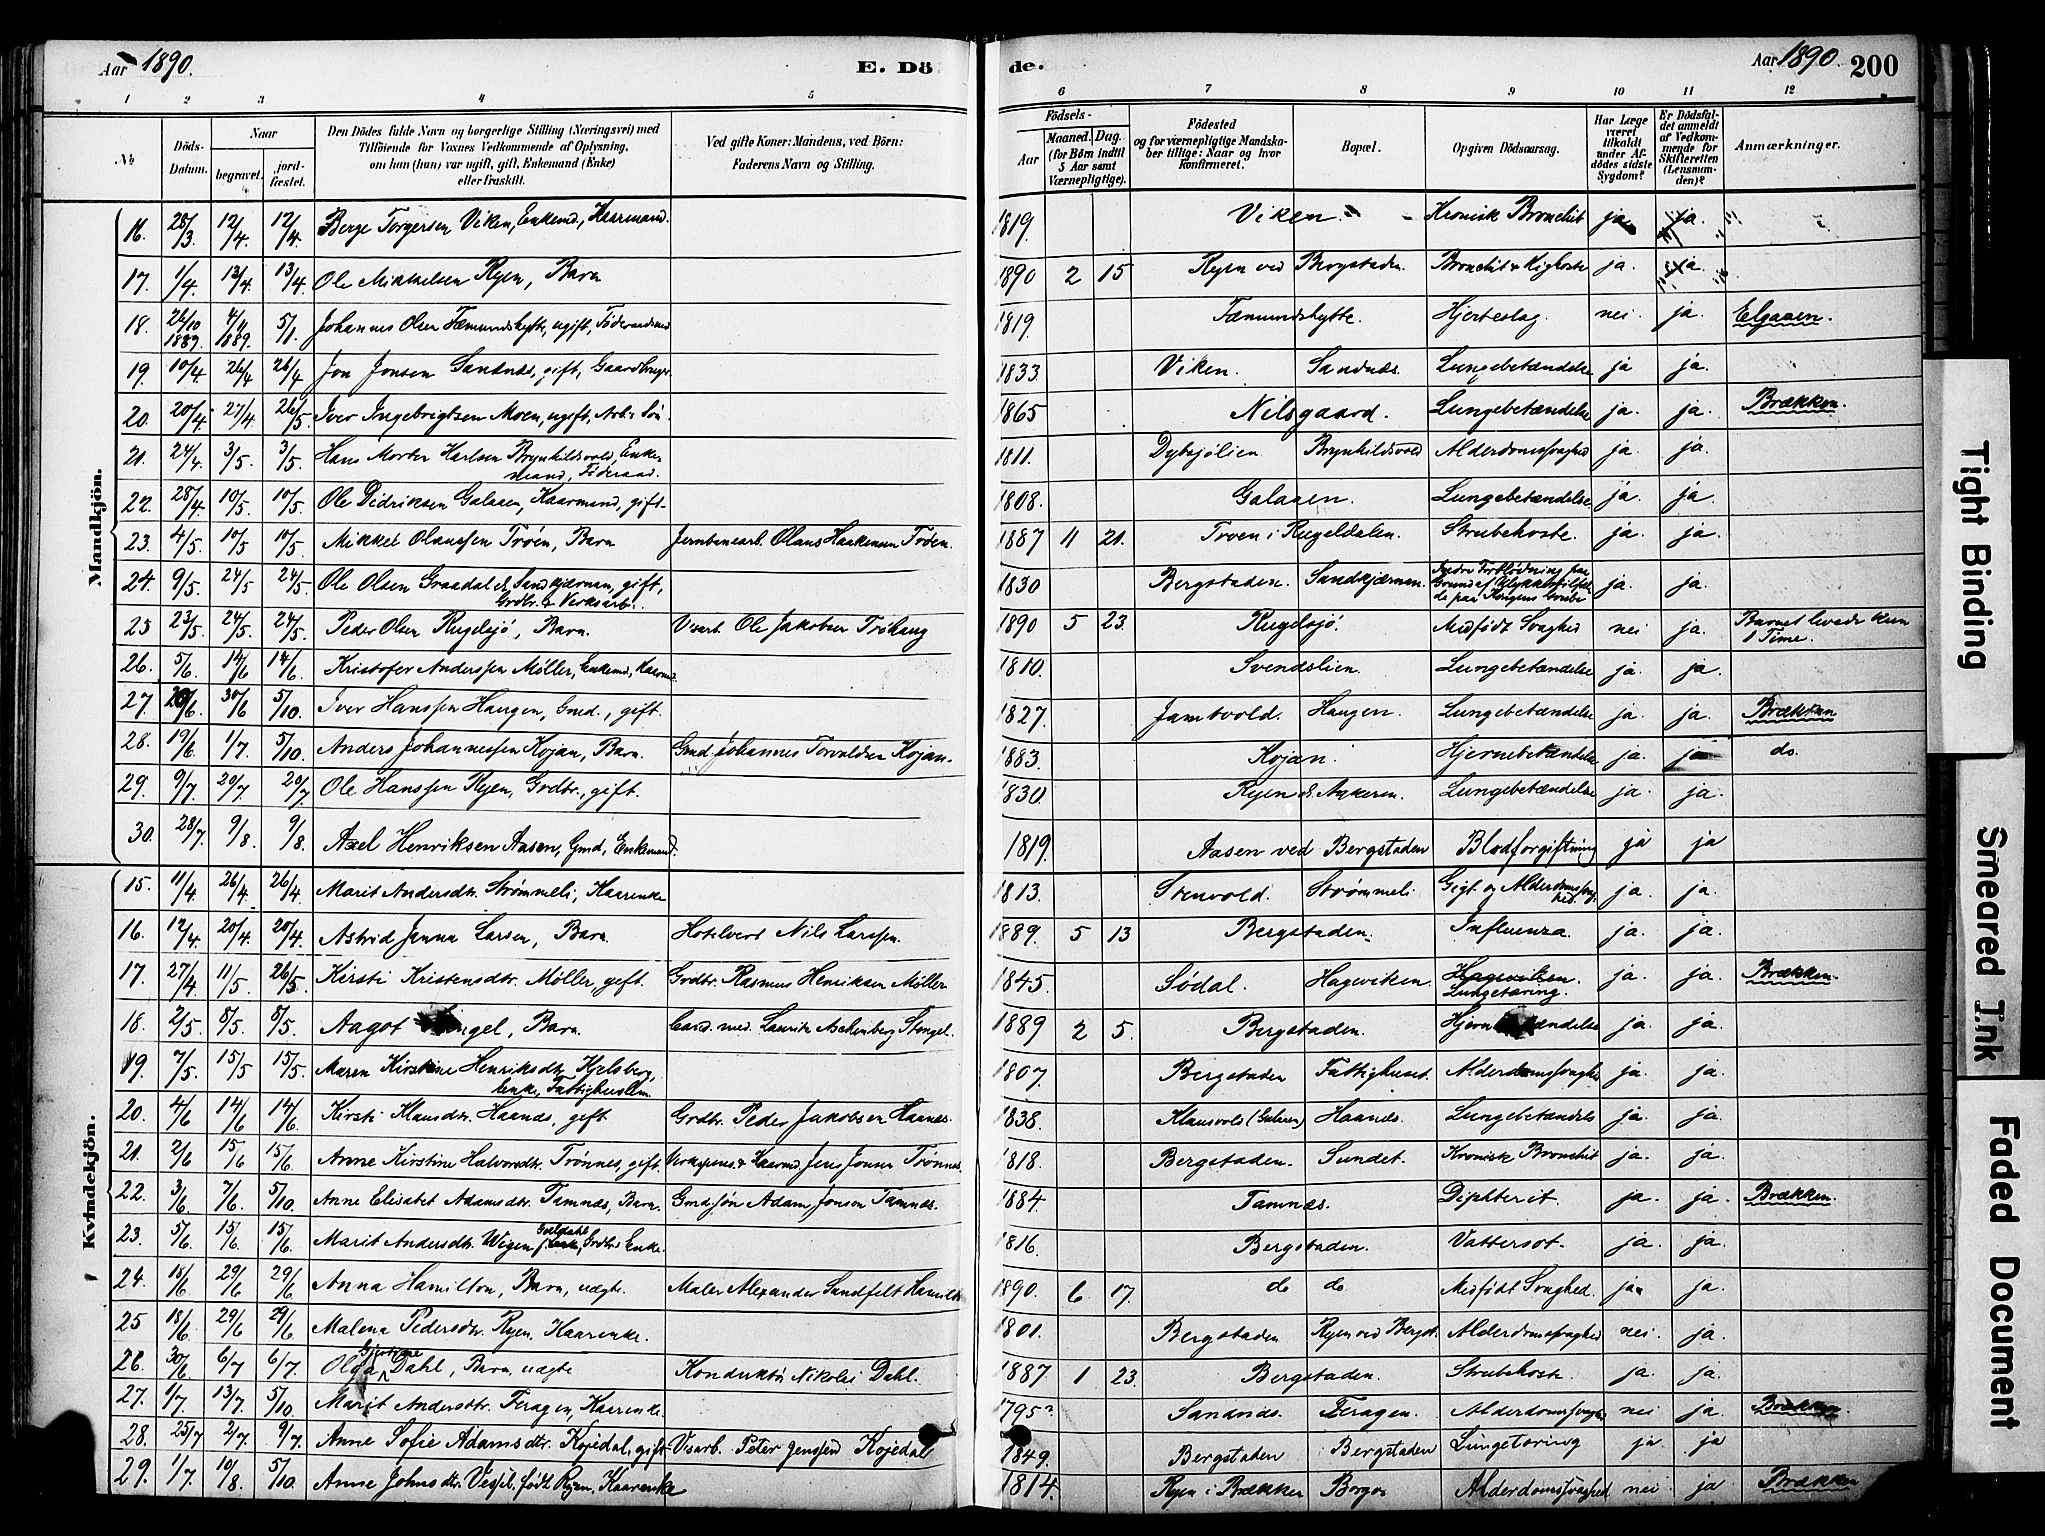 Aar 1890. E. Dö de. Aar 1890. 200
1 2 3 4 5 6 7 8 9 10 11 12
No Döds-Datum. Naar begravet. jordfæstet. Den Dödes fulde Navn og borgerlige Stilling (Næringsvei) med Tilföiende for Voxnes Vedkommende af Oplysning, om han (hun) var ugift, gift, Enkemand (Enke) eller fraskilt. Ved gifte Koner: Mandens, ved Börn: Faderens Navn og Stilling. Födsels- Aar Maaned. Dag. (for Börn indtil 5 Aar samt Værnepligtige). Födested og for værnepligtige Mandskaber tillige: Naar og hvor konfirmeret. Bopæl. Opgiven Dödsaarsag. Har Læge været tilkaldt under Afdödes sidste Sygdom? Er Dödsfaldet anmeldt af Vedkommende for Skifteretten (Lensmanden)? Anmærkninger.
Mandkjön.
16. 28/3 12/4. 12/4. Berge Torgersen Viken, Enkemd, Kaarmand. 1819. Viken. Kronisk Bronchit ja ja.
17. 1/4. 13/4. 13/4. Ole Mikkelsen Ryen, Barn 1890 2 15 Ryen ved Bergstaden. Bronchit & Kighoste ja. ja.
18. 24/10 1889. 4/11 1889. 5/1. Johannes Olsen Fæmundshytte, ugift, Föderaadsmd 1819. Fæmundshytte. Hjerteslag. nei ja. Elgaaen.
19. 10/4. 26/4 26/4 Jon Jonsen Sandnæs, gift, Gaardbruger. 1833. Viken. Sandnæs. Lungebetændelse ja ja.
20. 20/4 27/4. 26/5. Iver Ingebrigtsen Moen, ugift, Arb. Sön 1865 Nilsgaard. Lungebetændelse ja. ja. Brækken.
21. 24/4. 3/5. 3/5. Hans Morten Karlsen Brynhildsvold, Enkemand, Föderaad. 1811. Dybsjölien Brynhildsvold Alderdomssvaghed ja. ja.
22. 28/4 10/5. 10/5. Ole Didriksen Galaaen, Kaarmand, gift. 1808. Galaaen. Lungebetændelse ja. ja
23. 4/5. 10/5 10/5. Mikkel Olaussen Tröen, Barn Jernbanearb. Olaus Haakensen Tröen. 1887 11 21. Troen i Rugeldalen. Strubehoste. ja. ja.
24. 9/5. 24/5 24/5. Ole Olsen Graadal & Sandkjærnan, gift, Grdbr. & Verksarb. 1830 Bergstaden. Sandkjærnan. Indre Forblödning paa Grund af Ulykkestilfælde paa Kongens Grube ja. ja.
25 23/5. 24/5. 24/5. Peder Olsen Rugelsjö, Barn. Vsarb. Ole Jakobsen Tröhaug 1890 5 23. Rugelsjö. Medfödt Svaghed nei ja. Barnet levede kun 1 Time.
26. 5/6. 14/6 14/6. Kristofer Anderssen Möller, Enkemd, Kaarmd. 1810. Svendslien. Lungebetændelse ja. ja.
27. 20/6. 30/6 5/10. Iver Hanssen Haugen, Gmd., gift. 1827. Jamtvold. Haugen. Lungebetændelse ja. ja. Brækken
28. 19/6 1/7. 5/10. Anders Johannessen Kojan, Barn. Gmd. Johannes Torvaldsen Kojan. 1883. Kojan. Hjernebetændelse ja. ja do.
29. 9/7. 20/7. 20/7 Ole Hanssen Ryen, Grdbr., gift. 1830. Ryen & Aakeren. Lungebetændelse ja. ja.
30. 28/7 9/8. 9/8. Axel Henriksen Aasen, Gmd, Enkemand. 1819. Aasen ved Bergstaden Blodforgiftning ja ja
Kvindekjön.
15. 11/4 26/4. 26/4 Marit Andersdtr. Strömmeli, Kaarenke 1813. Stenvold. Strömmeli. Gigt og Alderdomssvaghed. ja. ja.
16. 17/4. 20/4. 20/4. Astrid Janna Larsen, Barn. Hotelvert Nils Larssen. 1889. 5 13 Bergstaden. Influenza. ja. ja.
17. 27/4 11/5. 26/5. Kirsti Kristensdtr. Möller, gift. Grdbr. Rasmus Henriksen Möller. 1845. Södal. Hagaviken. Hagaviken. Lungetæring. ja. ja. Brækken.
18. 2/5. 8/5. 8/5. Aagot Stengel, Barn. Cand. med. Lauritz Aschenberg Stengel. 1889 2 5. Bergstaden. Hjernebetændelse ja. ja.
19. 7/5. 15/5 15/5. Maren Kirstine Henriksdtr. Kjelsberg, Enke, Fattighuslem. 1807. Bergstaden Fattighuset. Alderdomssvaghed ja. ja.
20. 4/6 14/6 14/6. Kirsti Klausdtr. Haanæs, gift Grdbr. Peder Jakobsen Haanæs. 1838. Klausvold (Galaaen) Haanæs. Lungebetændelse ja. ja.
21. 2/6 15/6 15/6. Anne Kirstine Halvorsdtr. Trönnes, gift. Verkspens. & Kaarmd. Jens Jonsen Trönnes. 1818. Bergstaden. Sundet. Kronisk Bronchit ja. ja.
22. 3/6 7/6. 5/10. Anne Elisabet Adamsdtr. Tamnæs, Barn. Gmdssön Adam Jonsen Tamnæs. 1884. Tamnæs. Diphterit ja. ja. Brækken.
23. 5/6 15/6. 15/6. Marit Andersdtr. Wigen Grdbr. Enke. 1816. Bergstaden. Vattersot. ja. ja.
24. 18/6 29/6 29/6. Anna Hamilton, Barn, ægte. Maler Alexander Sandfelt Hamilton 1890. 6. 17. do do Medfödt Svaghed. ja ja.
25 18/6 29/6 29/6. Malena Pedersdtr. Ryen, Kaarenke. 1801. Bergstaden Ryen ved Bergst. Alderdomssvaghed nei. ja.
26. 30/6 6/7 6/7. Olga Dahl, Barn, ægte Konduktör Nikolai Dahl. 1887. 1 23. Bergstaden. Strubehoste ja. ja.
27. 1/7. 13/7. 5/10 Marit Andersdtr. Feragen, Kaarenke. 1795? Sandnæs. Feragen. Alderdomssvagh. nei ja Brækken.
28. 25/7 2/7. 9/7. Anne Sofie Adamsdtr. Kojedal, gift. Vsarb. Peter Jenssen Kojedal 1849. Bergstaden Bergstaden Lungetæring ja ja
29. 1/7. 10/8. 5/10. Anne Johnsdtr. Vessel, födt Ryen, Kaarenke 1814. Ryen i Brækken Borgos Alderdomssvaghed nei ja Brækken
Tight Binding
Smeared Ink
Faded Document